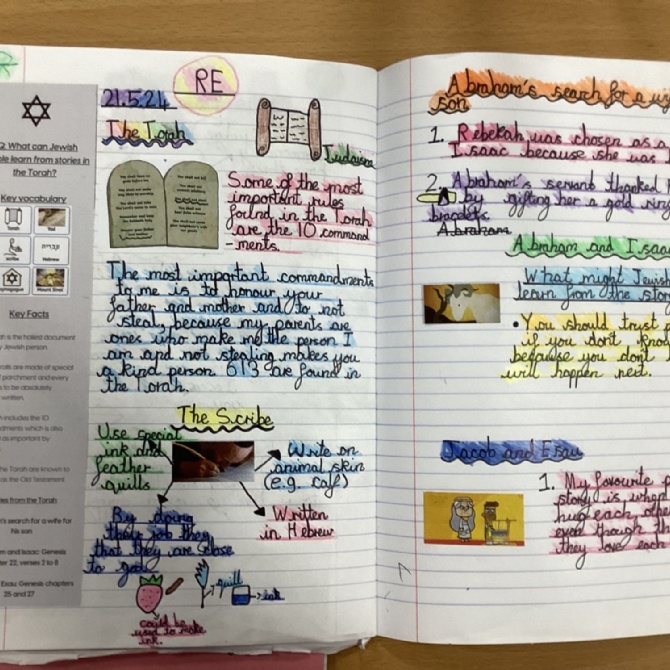 Q: What can Jewish
learn from stories in
the Torah?
Key vocabulary
Torah
Yad
scribe
Hebrew
Synagogue
Mount Sinai
Key Facts
is the holiest document
Jewish person.
are made of special
parchment and every
to be absolutely
written.
includes the 10
which is also
as important by
the Torah are known to
as the Old Testament
from the Torah
search for a wife for
his son
and Isaac: Genesis
22, verses 2 to 8
Esau: Genesis chapters
25 and 27
RE
21.5.24
The Torah
Judaism
Some of the most
important rules
found in the Torah
are the 10 command
-ments.
The most important commandments
to me is to honour your
father and mother and to not
steal, because my parents are
ones who make me the person I
am and not stealing makes you
a kind person. 613 are found in
the Torah.
The Scribe
Use special
ink and
feather
quills
Write on
animal skin
(e.g. calf)
Written
in Hebrew
By doing
their job they
that they are close
to god
quill
ink
could be
used to make
ink.
Abraham's search for a
son
1. Rebekah was chosen as a
Isaac because she was
2. Abraham's servant thanked
by gifting her a gold ring
bracelets
Abraham
Abraham and Isaac
What might Jewish
learn from the story
• You should trust
if you don't know
because you don't
will happen next.
Jacob and Esau
1. My favourite
story is when
hug each other
even though
they love each